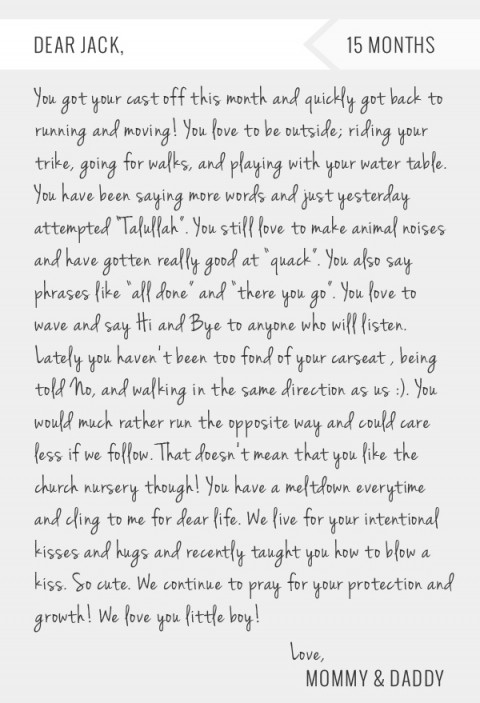 DEAR JACK,
15 MONTHS
You got your cast off this month and quickly got back to
running and moving! You love to be outside; riding your
trike, going for walks, and playing with your water table.
You have been saying more words and just yesterday
attempted "Talullah". You still love to make animal noises
and have gotten really good at "quack". You also say
phrases like "all done" and "there you go". You love to
wave and say Hi and Bye to anyone who will listen.
Lately you haven't been too fond of your carseat , being
told No, and walking in the same direction as us :). You
would much rather run the opposite way and could care
less if we follow. That doesn't mean that you like the
church nursery though! You have a meltdown everytime
and cling to me for dear life. We live for your intentional
kisses and hugs and recently taught you how to blow a
kiss. So cute. We continue to pray for your protection and
growth! We love you little boy!
Love,
MOMMY & DADDY